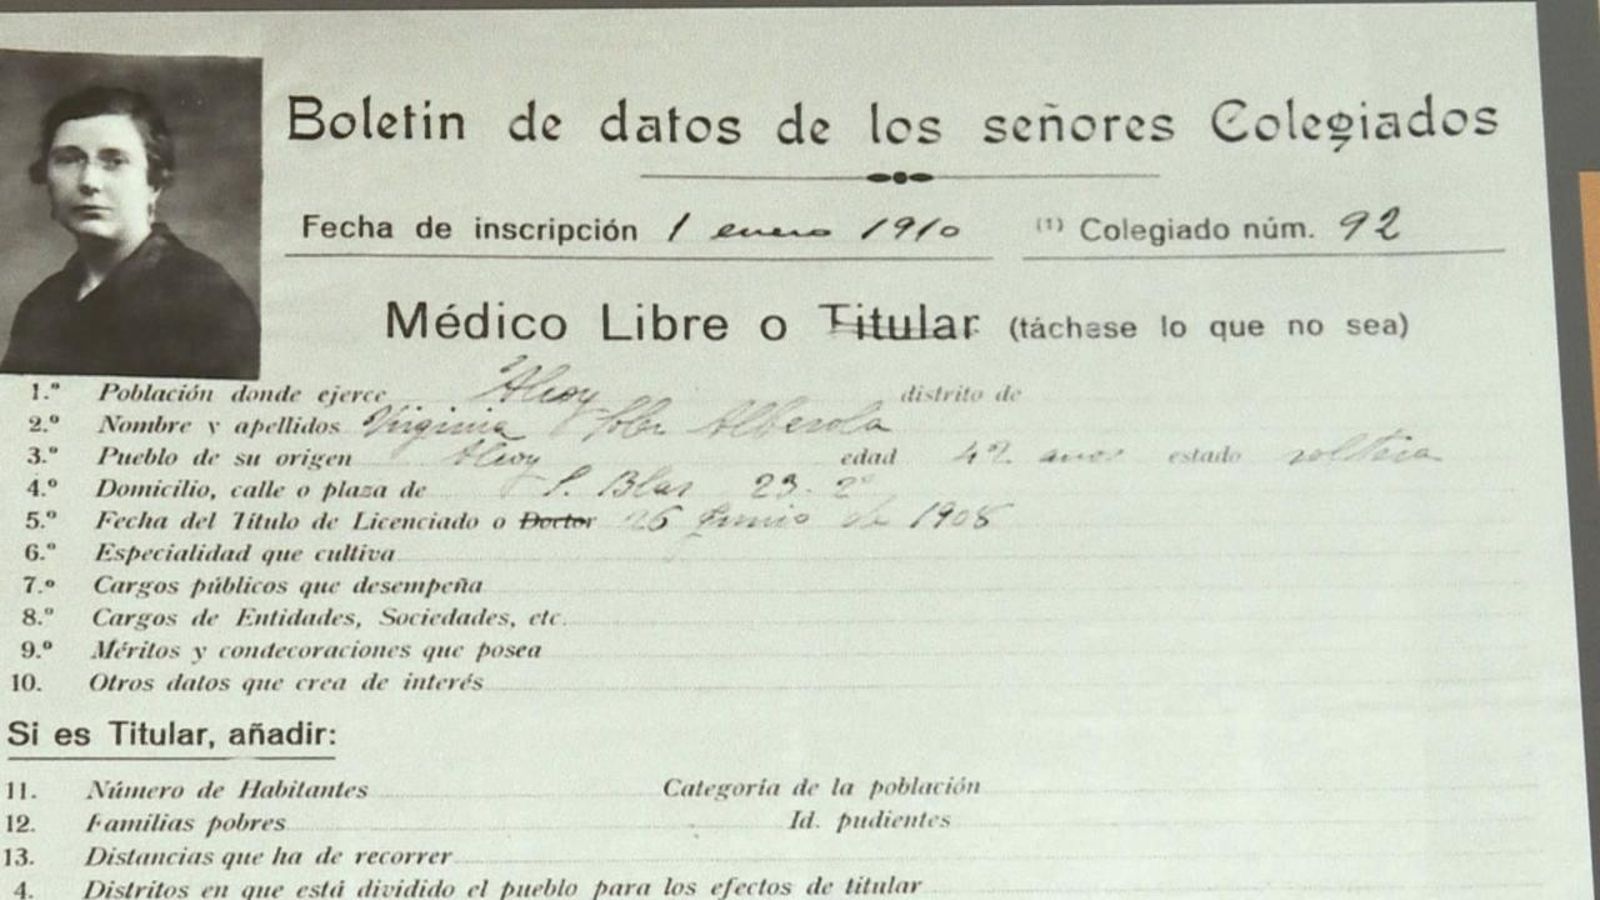 Boletin de datos de los señores Colegiados
Fecha de inscripción 1 enero 1910 (1) Colegiado núm. 92
Médico Libre o Titular (táchese lo que no sea)
1.º Población donde ejerce Alcoy distrito de
2.º Nombre y apellidos Virginia Alberola
3.º Pueblo de su origen Alcoy edad 42 anos estado soltera
4.º Domicilio, calle o plaza de S. Blas 23. 2º
5.º Fecha del Título de Licenciado o Doctor 26 Junio de 1908
6.º Especialidad que cultiva
7.º Cargos públicos que desempeña
8.º Cargos de Entidades, Sociedades, etc.
9.º Méritos y condecoraciones que posea
10. Otros datos que crea de interés
Si es Titular, añadir:
11. Número de Habitantes Categoría de la población
12. Familias pobres Id. pudientes
13. Distancias que ha de recorrer
4. Distritos en que está dividido el pueblo para los efectos de titular